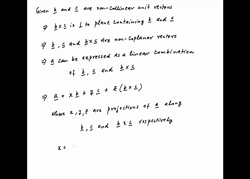 Given b and c are non-collinear unit vectors
⇒ b × c is ⊥ to plane containing b and c
⇒ b, c and b × c are non-coplanar vectors
⇒ a can be expressed as a linear combination
of b, c and b × c
⇒ a = x b + y c + z (b × c)
where x, y, z are projections of a along
b, c and b × c respectively
x =